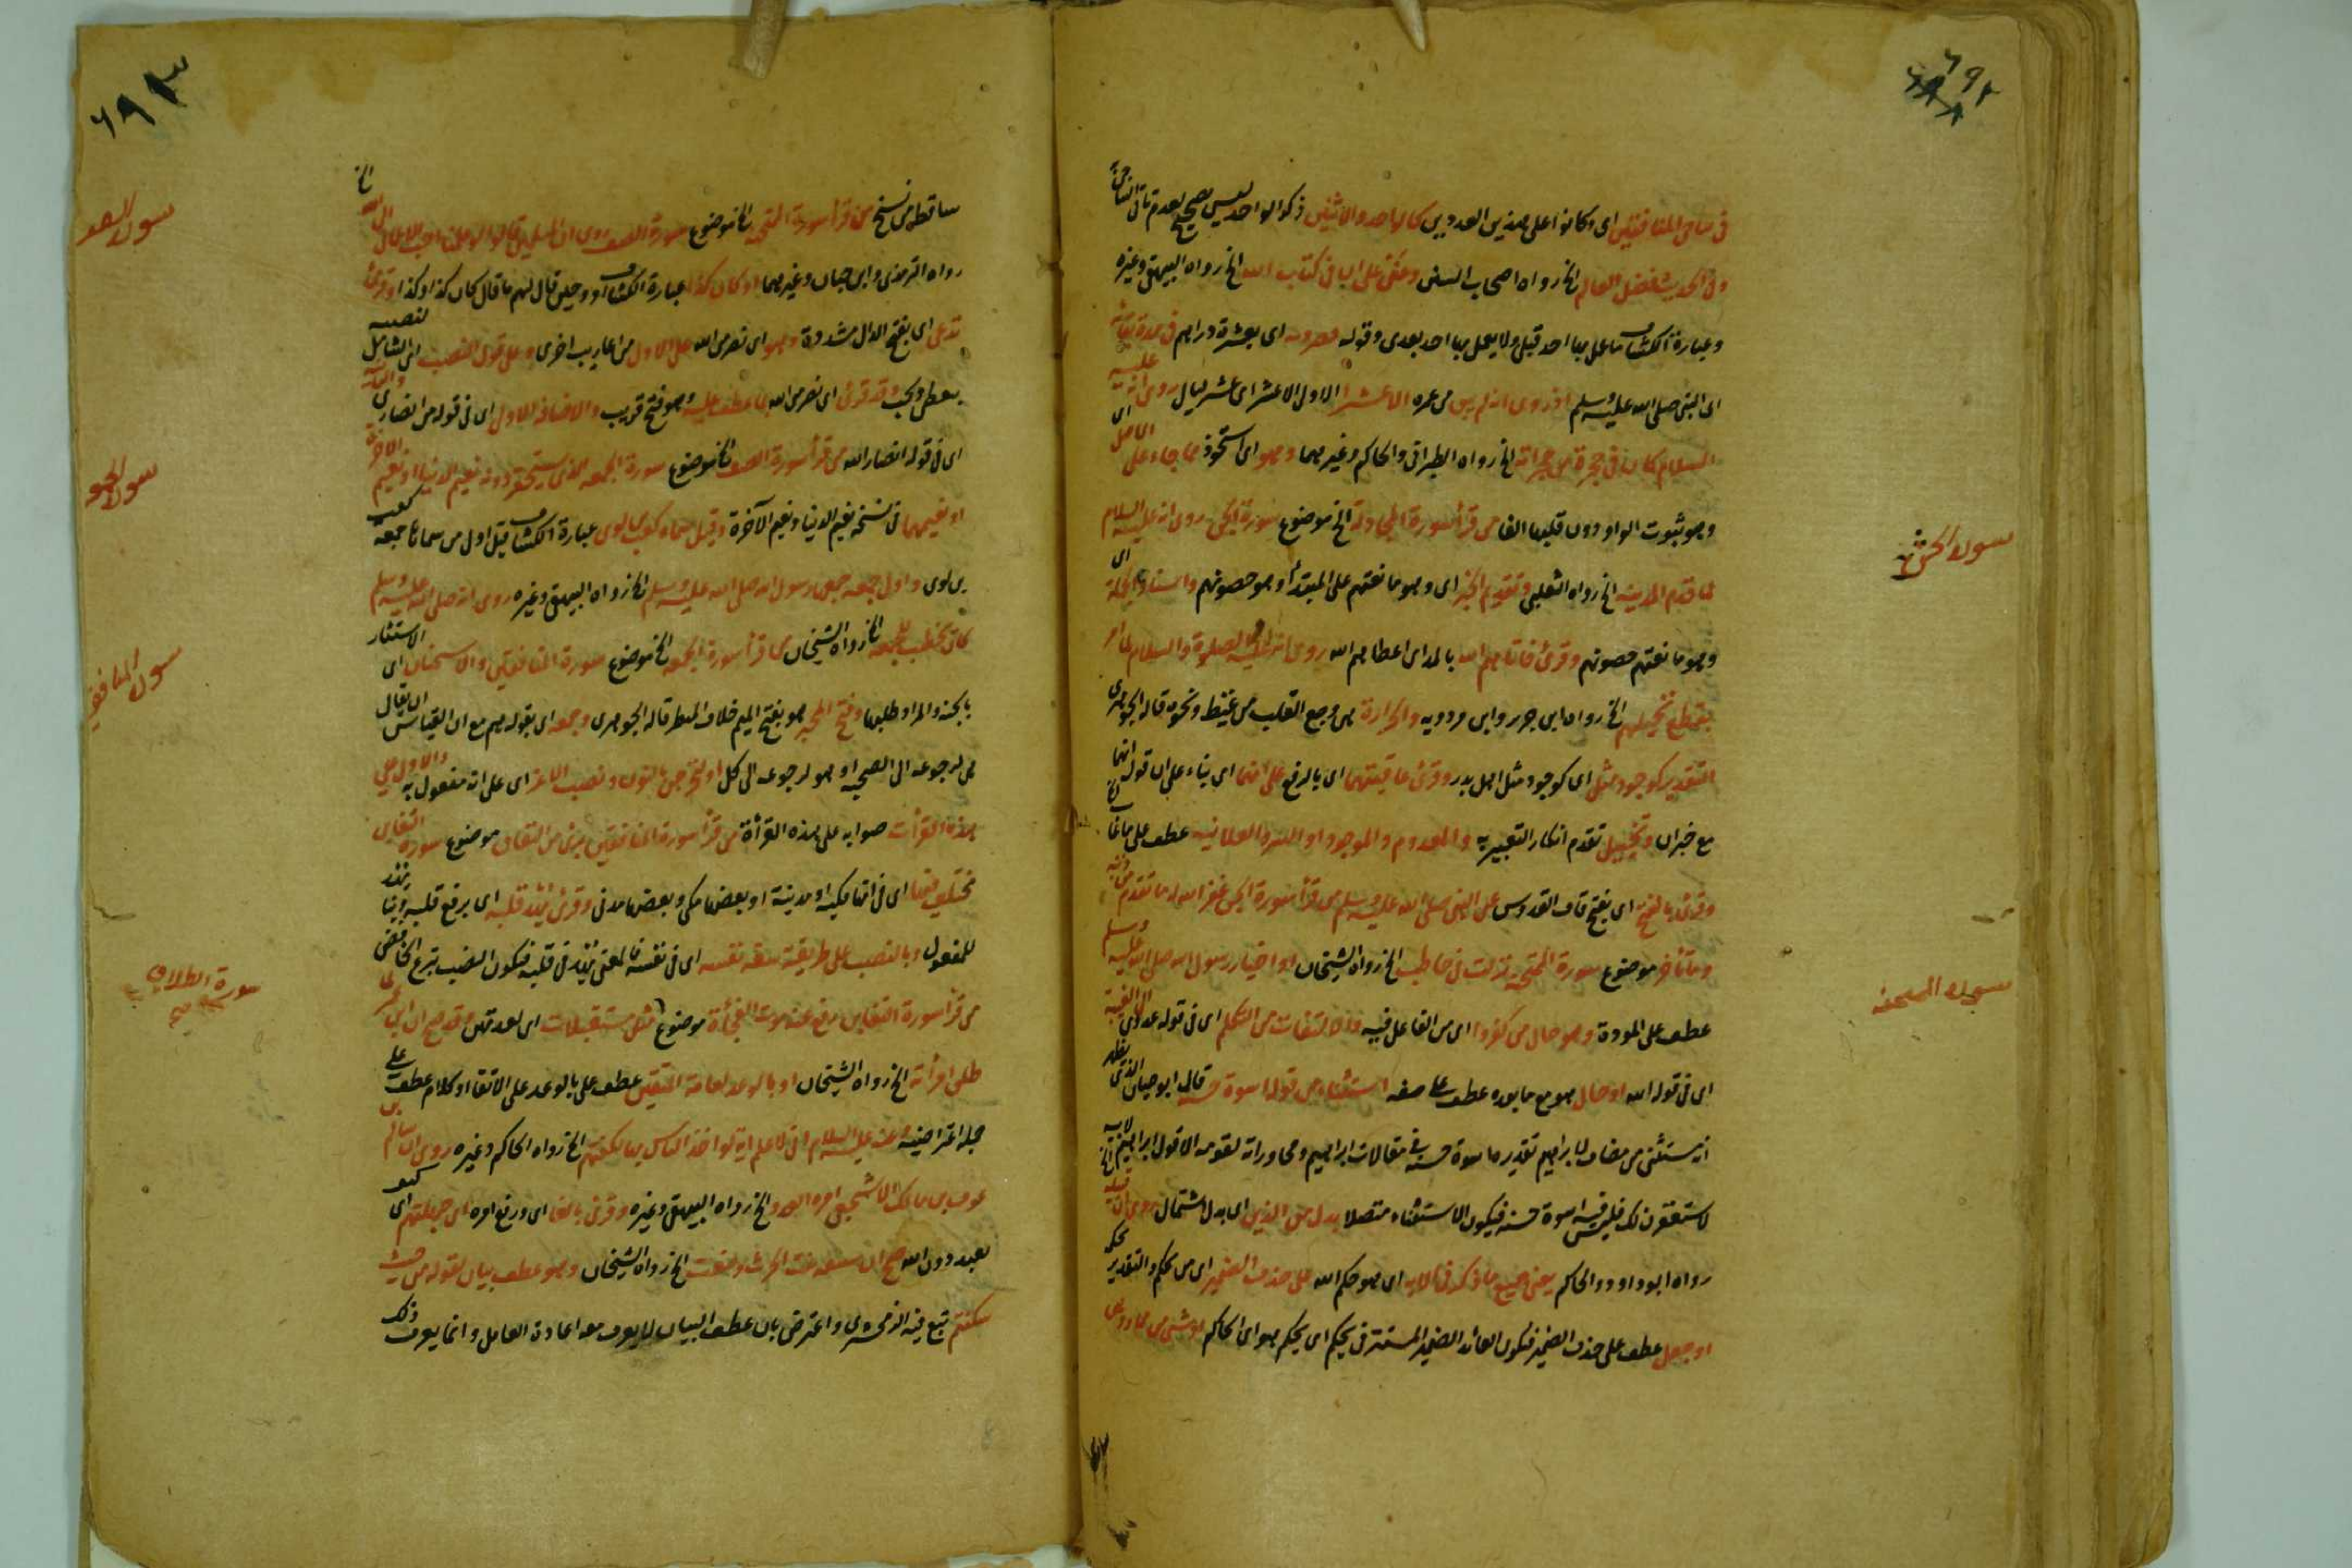 ٦٩٢
في تناجي المنافقين اي وكانوا على هذين العددين كالواحد والاثنين ذكر الواحد ليس بصحيح لعدم تاتي التناجي
وفي الحديث فضل العالم الخ رواه اصحاب السنن وعن علي ان في كتاب الله الخ رواه البيهقي وغيره
وعبارة الكشاف ما عمل بها احد قبلي ولا يعمل بها احد بعدي وقوله فصرفته اي بعشرة دراهم في مدة بقائه
اي النبي صلى الله عليه وسلم اذ روي انه لم يبق من عمره الا عشرا الاولى الا عشر اي عشر ليال روي انه عليه
السلام كان في حجرة من حجراته الخ رواه الطبراني والحاكم وغيرهما وهو اي استحوذ مما جاء على الاصل اي
وهو ثبوت الواو دون قلبها الفا من قرأ سورة المجادلة الخ موضوع سورة الحشر روي انه عليه السلام
لما قدم المدينة الخ رواه الثعلبي وتقديم الخبر اي وهو مانعتهم على المبتدأ وهو حصونهم واسناد الجملة اي
وهو مانعتهم حصونهم وقرئ فآتاهم الله بالمد اي اعطاهم الله روي انه عليه الصلوة والسلام لما امر
بقطع نخيلهم الخ رواه ابن جرير وابن مردويه والحزازة هي وجع القلب من غيظ ونحوه قاله الجوهري
التقدير كوجود مثل اي كوجود مثل اهل بدر وقرئ عاقبتهما اي بالرفع على انها اي بناء على ان قوله انهما
مع خبر ان وتخييل تقدم انكار التعبير به والمعدوم والموجود او السر والعلانية عطف على ما غاب الخ
وقرئ بالفتح اي بفتح قاف القدوس عن النبي صلى الله عليه وسلم من قرأ سورة الحشر غفر الله له ما تقدم من ذنبه
وما تأخر موضوع سورة الممتحنة نزلت في حاطب الخ رواه الشيخان او اخبار رسول الله صلى الله عليه وسلم
عطف على المودة وهو حال من كفروا اي من الفاعل فيه والالتفات من التكلم اي في قوله عدوي الى الغيبة
اي في قوله الله او حال هو مع ما بعده عطف على صفة استثناء من قوله اسوة حسنة قال ابو حيان الذي يظهر
انه مستثنى من مضاف لابراهيم تقديره اسوة حسنة في مقالات ابراهيم ومحاوراته لقومه الا قول ابراهيم لابيه الخ
لاستغفرن لك فليس فيه اسوة حسنة فيكون الاستثناء متصلا بدل من الذين اي بدل اشتمال روي ان قتيلة
رواه ابو داود والحاكم يعني جميع ما ذكر في الاية اي هو حكم الله على حذف الضمير اي من يحكم والتقدير يحكمه
او جعل عطف على حذف الضمير فيكون العائد الضمير المستتر في يحكم اي يحكم هو اي الحاكم
سورة الحشر
سورة الممتحنة
٦٩٣
ساقط من نسخ من قرأ سورة الممتحنة الخ موضوع سورة الصف روي ان المسلمين قالوا لو علمنا احب الاعمال الى الله الخ
رواه الترمذي وابن حبان وغيرهما او كان كذا عبارة الكشاف او وحين قال لهم ما قال كان كذا وكذا وقرئ
تدعى اي بفتح الدال مشددة وهو اي نصر من الله على الاول من اعاريب اخرى وعلى قول النصب اي الشامل لنصبه
بعطي وبحب وقد قرئ اي نصر من الله بما عطف عليه وهو فتح قريب والاضافة الاولى اي في قوله من انصاري والثانية
اي في قوله انصار الله من قرأ سورة الصف الخ موضوع سورة الجمعة الذي يستحقر دونه نعيم الدنيا او نعيم الاخرة
او نعيمهما في نسخة نعيم الدنيا ونعيم الآخرة وقيل سماه كعب بن لوي عبارة الكشاف قيل اول من سماها جمعة كعب
بن لوي واول جمعة جمعها رسول الله صلى الله عليه وسلم الخ رواه البيهقي وغيره روي انه صلى الله عليه وسلم
كان يخطب للجمعة الخ رواه الشيخان من قرأ سورة الجمعة الخ موضوع سورة المنافقين والاستجنان اي الاستتار
بالجنة والمراد طلبها وفتح المخبر هو بفتح الميم خلاف المنظر قاله الجوهري وجمعه اي بقوله هم مع ان القياس ان يقال
هي لرجوعه الى الصيحة او هو لرجوعه الى كل او لنخرجن بالنون ونصب الاعز اي على انه مفعول به والاول على
هذه القرآت صوابه على هذه القرأة من قرأ سورة المنافقين برئ من النفاق موضوع سورة التغابن
مختلف فيها اي في انها مكية او مدنية او بعضها مكي وبعضها مدني وقرئ يهد قلبه اي برفع قلبه وبناء يهد
للمفعول وبالنصب على طريقة سفه نفسه اي في نفسه فالمعنى يهد في قلبه فيكون النصب بنزع الخافض
من قرأ سورة التغابن دفع عنه موت الفجأة موضوع مثل مستقبلات اي لعدتهن وقد صح ان ابن عمر لما
طلق امرأته الخ رواه الشيخان او بالوعد لعامة المتقين عطف على بالوعد على الاتقا او كلام عطف على
جملة اعتراضية وعنه عليه السلام اني لاعلم اية لو اخذ الناس بها لكفتهم الخ رواه الحاكم وغيره روي ان سالم بن
عوف بن مالك الاشجعي اسره العدو الخ رواه البيهقي وغيره وقرئ بالغ اي ورفع امره اي جملتهم اي كيف
بعبد دون الله صح ان سقته الخ رواه الشيخان وهو عطف بيان لقوله من حيث
سكنتم تبع فيه الزمخشري واعترض بان عطف البيان لا يعرف معه اعادة العامل وانما يعرف ذلك
سورة الصف
سورة الجمعة
سورة المنافقين
سورة الطلاق